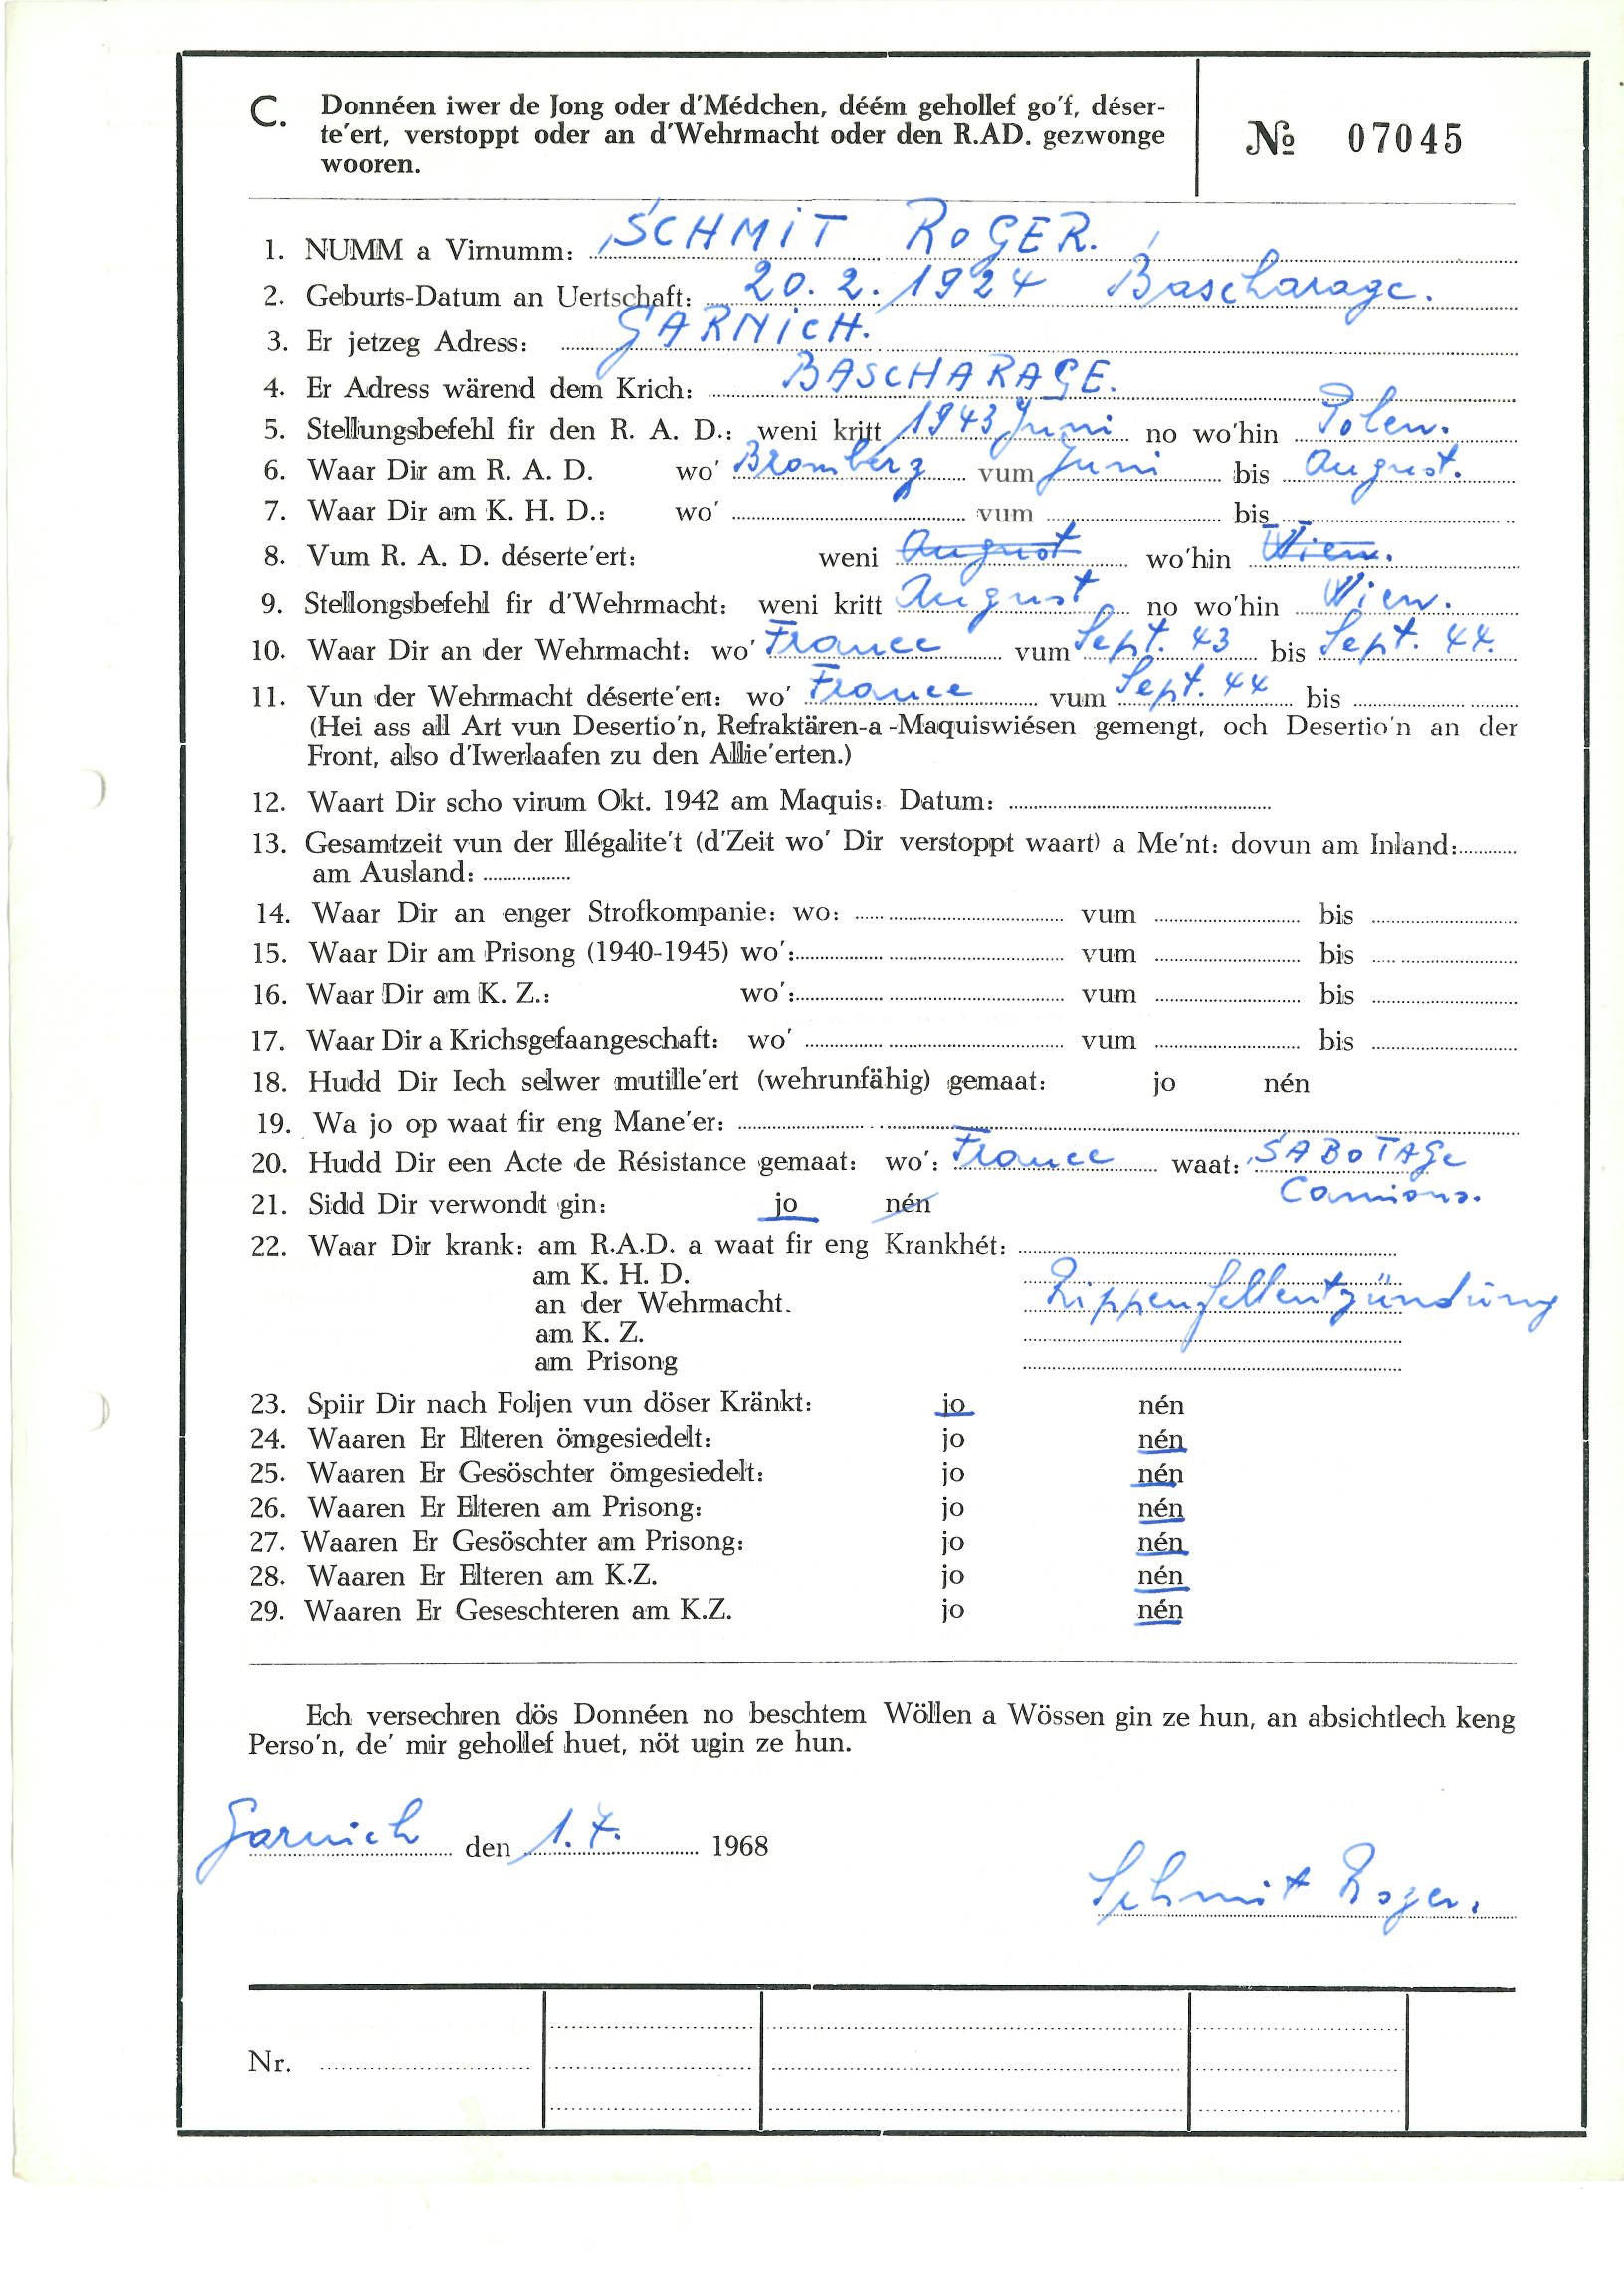 C. Donnéen iwer de Jong oder d'Médchen, déém gehollef go'f, déser-
te'ert, verstoppt oder an d'Wehrmacht oder den R.AD. gezwonge
wooren.
№ 07045
1. NUMM a Virnumm: SCHMIT ROGER.
2. Geburts-Datum an Uertschaft: 20. 2. 1924 Bascharage.
3. Er jetzeg Adress: GARNICH.
4. Er Adress wärend dem Krich: BASCHARAGE.
5. Stellungsbefehl fir den R. A. D.: weni kritt 1943 Juni no wo'hin Polen.
6. Waar Dir am R. A. D. wo' Bromberg vum Juni bis August.
7. Waar Dir am K. H. D.: wo' vum bis
8. Vum R. A. D. déserte'ert: weni August wo'hin Wien.
9. Stellongsbefehl fir d'Wehrmacht: weni kritt August no wo'hin Wien.
10. Waar Dir an der Wehrmacht: wo' France vum Sept. 43 bis Sept. 44.
11. Vun der Wehrmacht déserte'ert: wo' France vum Sept. 44 bis
(Hei ass all Art vun Desertio'n, Refraktären-a-Maquiswiésen gemengt, och Desertio'n an der
Front, also d'Iwerlaafen zu den Allie'erten.)
12. Waart Dir scho virum Okt. 1942 am Maquis: Datum:
13. Gesamtzeit vun der Illégalite't (d'Zeit wo' Dir verstoppt waart) a Me'nt: dovun am Inland:
am Ausland:
14. Waar Dir an enger Strofkompanie: wo: vum bis
15. Waar Dir am Prisong (1940-1945) wo': vum bis
16. Waar Dir am K. Z.: wo': vum bis
17. Waar Dir a Krichsgefaangeschaft: wo' vum bis
18. Hudd Dir Iech selwer mutille'ert (wehrunfähig) gemaat: jo nén
19. Wa jo op waat fir eng Mane'er:
20. Hudd Dir een Acte de Résistance gemaat: wo': France waat: SABOTAGE
Camions.
21. Sidd Dir verwondt gin: jo nén
22. Waar Dir krank: am R.A.D. a waat fir eng Krankhét:
am K. H. D.
an der Wehrmacht. Rippenfellentzündung
am K. Z.
am Prisong
23. Spiir Dir nach Foljen vun döser Kränkt: jo nén
24. Waaren Er Elteren ömgesiedelt: jo nén
25. Waaren Er Gesöschter ömgesiedelt: jo nén
26. Waaren Er Elteren am Prisong: jo nén
27. Waaren Er Gesöschter am Prisong: jo nén
28. Waaren Er Elteren am K.Z. jo nén
29. Waaren Er Geseschteren am K.Z. jo nén
Ech versechren dös Donnéen no beschtem Wöllen a Wössen gin ze hun, an absichtlech keng
Perso'n, de' mir gehollef huet, nöt ugin ze hun.
Garnich den 1. 7. 1968
Schmit Roger.
Nr.